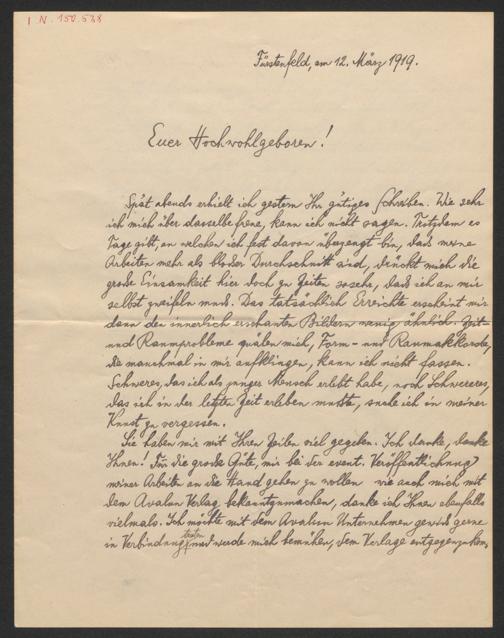 I.N. 150.538
Fürstenfeld, am 12. März 1919.
Euer Hochwohlgeboren!
Spät abends erhielt ich gestern Ihr gütiges Schreiben. Wie sehr
ich mich über dasselbe freue, kann ich nicht sagen. Trotzdem es
Tage gibt, an welchen ich fest davon überzeugt bin, dass meine
Arbeiten mehr als bloßer Durchschnitt sind, drückt mich die
große Einsamkeit hier doch zu Zeiten so sehr, dass ich an mir
selbst zweifeln muss. Das tatsächlich Erreichte erscheint mir
dann den innerlich erschauten Bildern wenig ähnlich. Zeit-
und Raumprobleme quälen mich, Form- und Raumakkorde,
die manchmal in mir aufklingen, kann ich nicht fassen.
Schweres, das ich als junger Mensch erlebt habe, noch Schwereres,
das ich in der letzten Zeit erleben musste, suche ich in meiner
Kunst zu vergessen.
Sie haben mir mit Ihren Zeilen viel gegeben. Ich danke, danke
Ihnen! Für die große Güte, mir bei der event. Veröffentlichung
meiner Arbeiten an die Hand gehen zu wollen wie auch mich mit
dem Avalun Verlag bekanntzumachen, danke ich Ihnen ebenfalls
vielmals. Ich möchte mit dem Avalun Unternehmen gerne
in Verbindung treten und werde mich bemühen, dem Verlage entgegenzukom